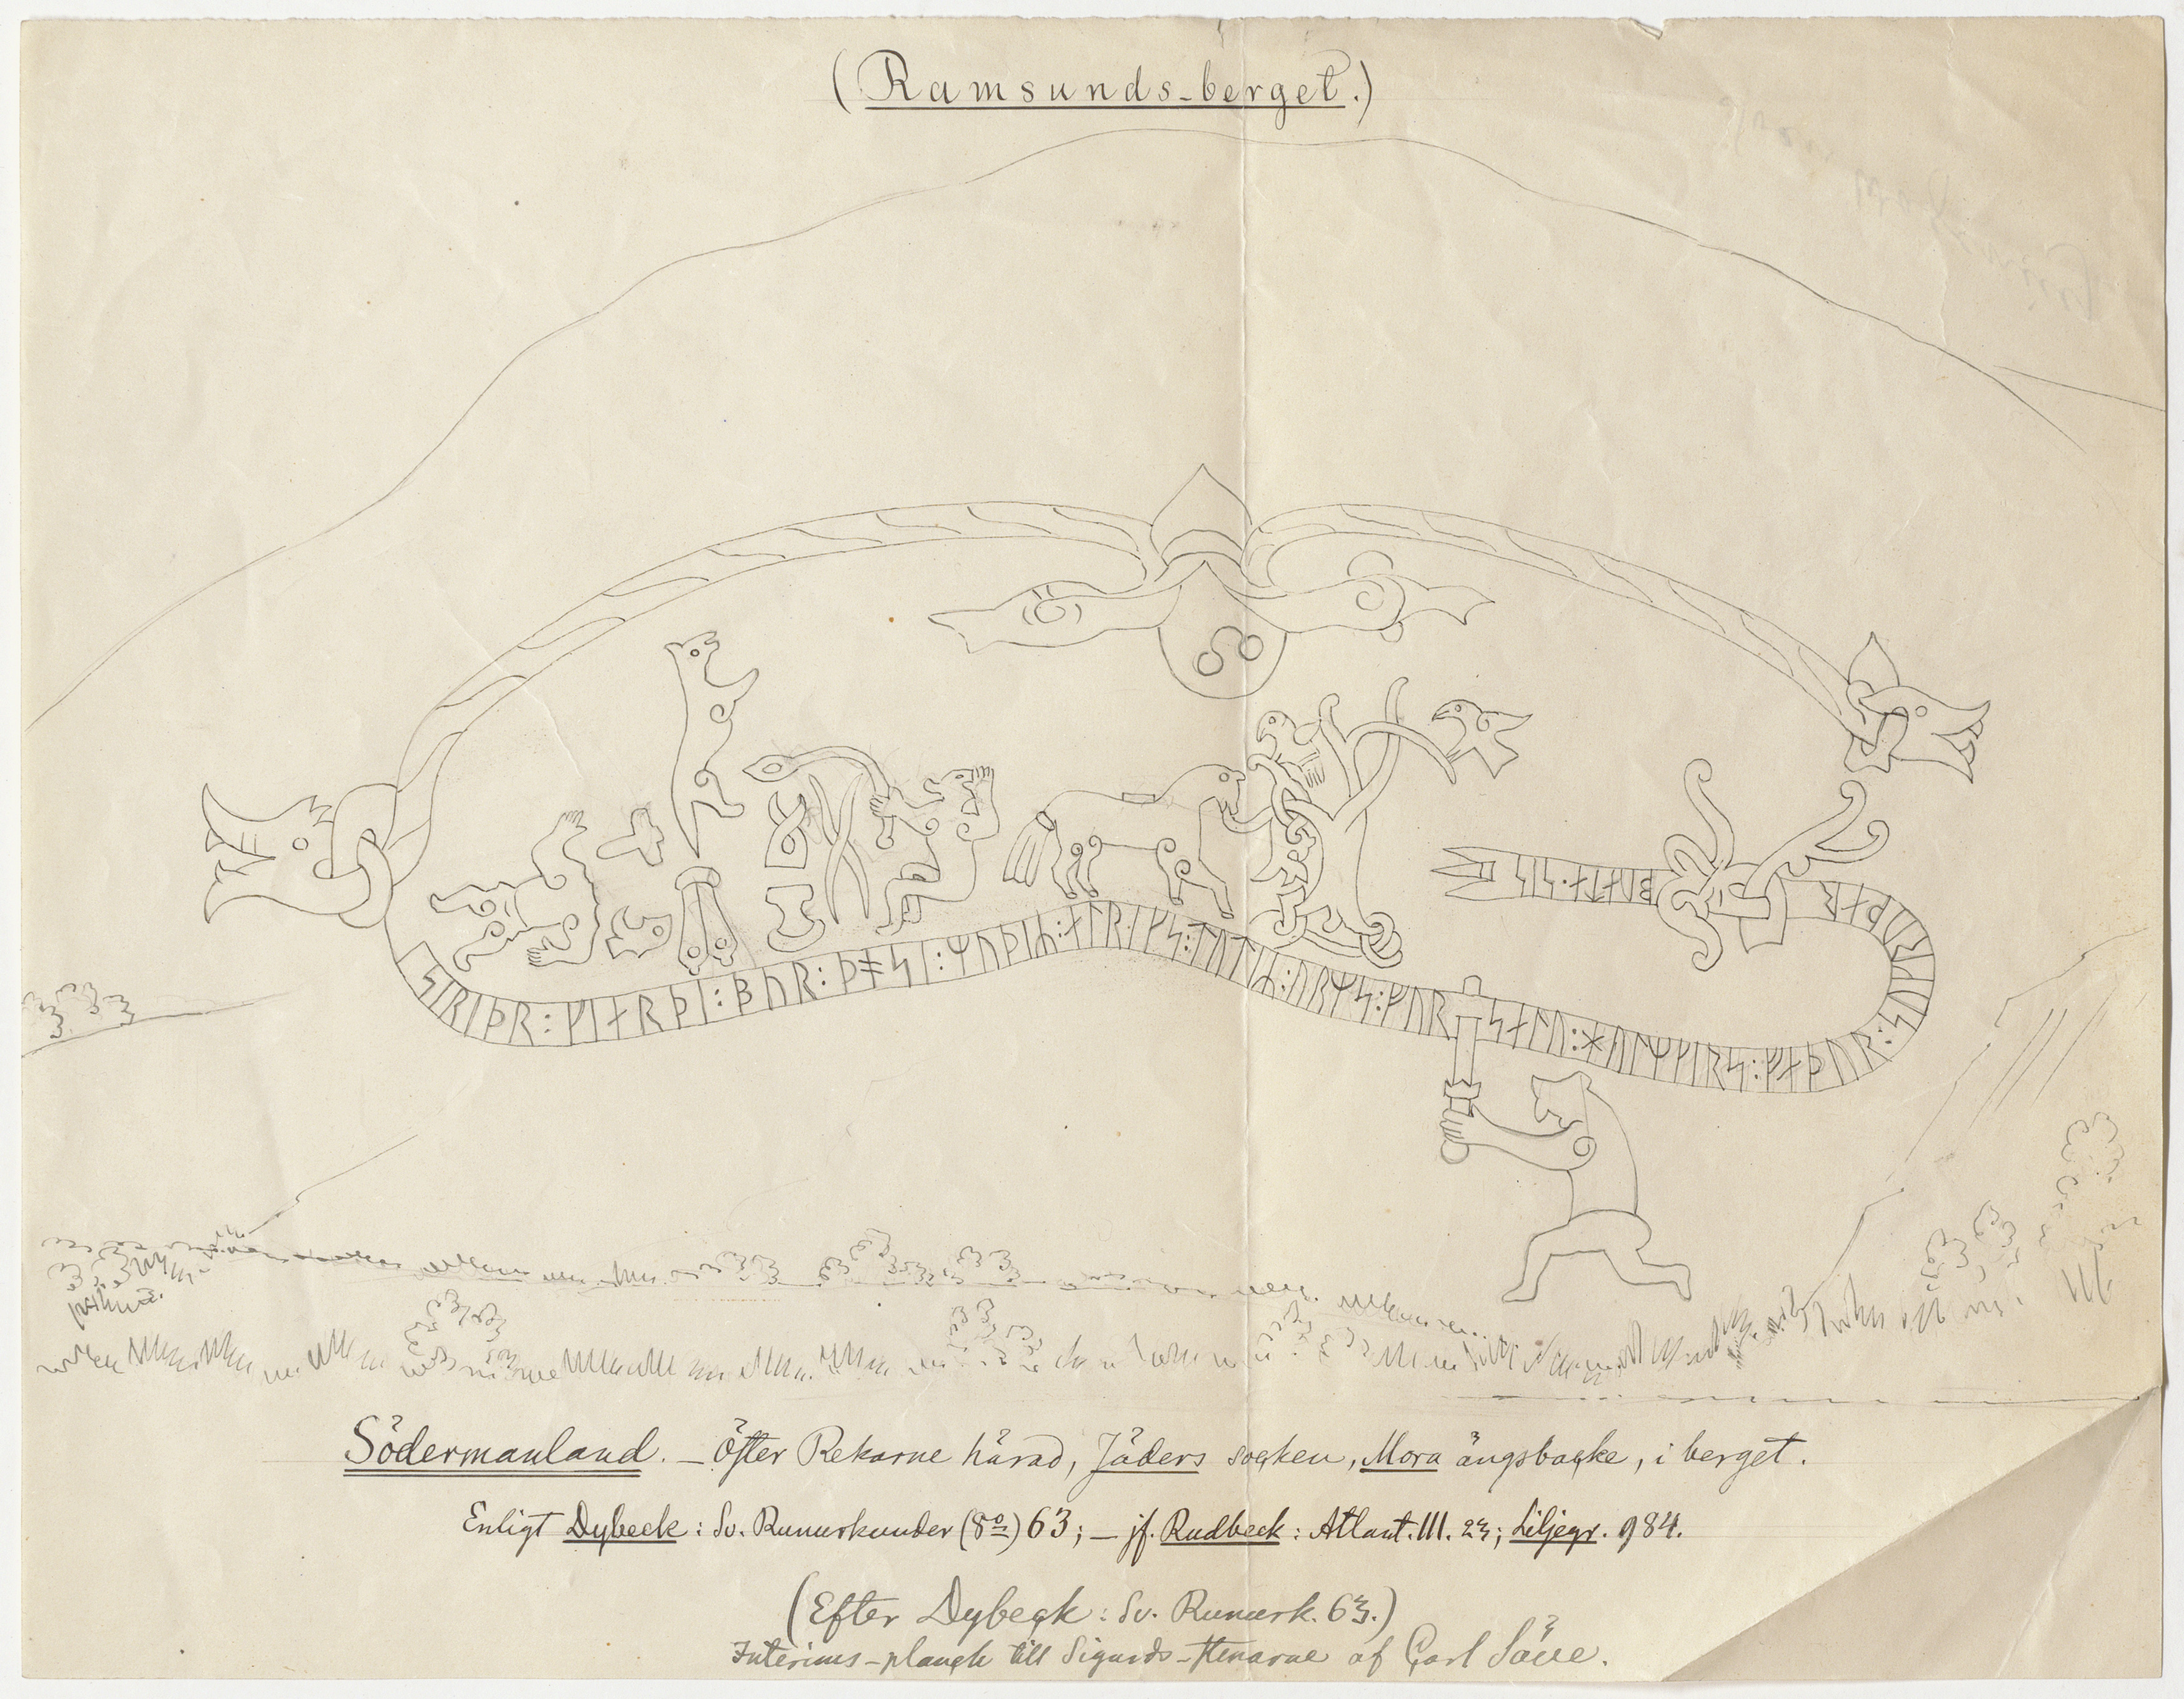 (Ramsunds-berget.)
ᛋᛁᚱᛁᚦᚱ : ᚴᛁᛅᚱᚦᛁ : ᛒᚢᚱ : ᚦᚬᛋᛁ : ᛘᚢᚦᛁᛦ : ᛅᛚᚱᛁᚴᛋ : ᛏᚢᛏᛁᛦ : ᚢᚱᛘᛋ : ᚠᚢᚱ ᛋᛅᛚᚢ : ᚼᚢᛚᛘᚴᛁᚱᛋ : ᚠᛅᚦᚢᚱ : ᛋᚢᚴᚱᚢᚦᛅᚱ ᛒᚢᛅᛏᛅ · ᛋᛁᛋ
Södermanland. – Öster Rekarne härad, Jäders socken, Mora ängsbacke, i berget.
Enligt Dybeck: Sv. Runurkunder (8º) 63; – jf. Rudbeck: Atlant. III. 23; Liljegr. 984.
(Efter Dybeck: Sv. Runurk. 63.)
Interims-planch till Sigurds-stenarne af Carl Säve.